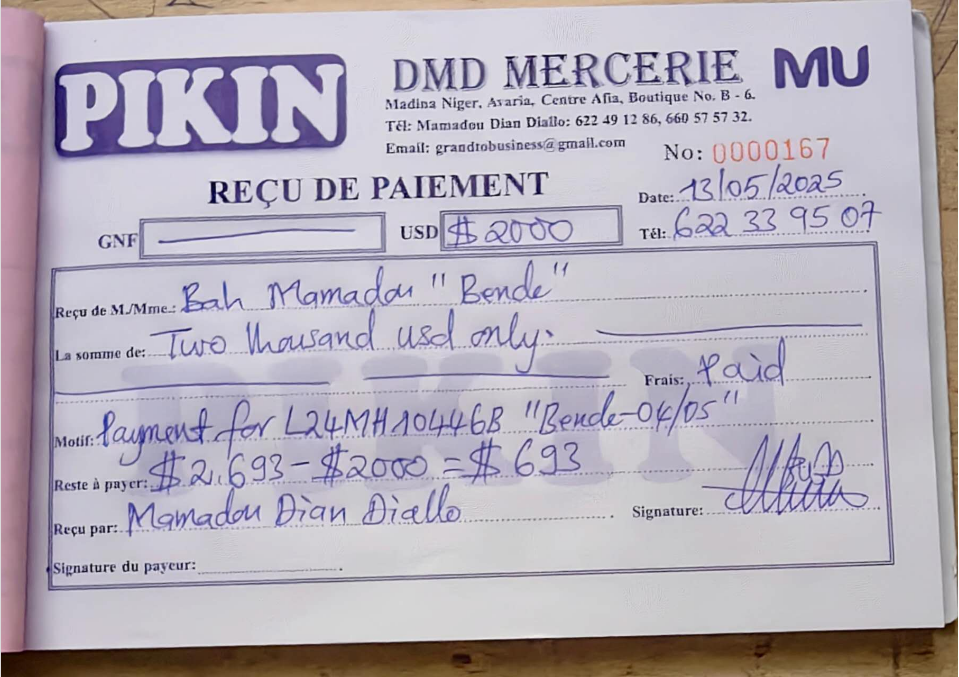 PIKIN
DMD MERCERIE MU
Madina Niger, Avaria, Centre Afia, Boutique No. B - 6.
Tél: Mamadou Dian Diallo: 622 49 12 86, 660 57 57 32.
Email: grandtobusiness@gmail.com
No: 0000167
REÇU DE PAIEMENT
Date: 13/05/2025
GNF USD $ 2000
Tél: 622 33 95 07
Reçu de M./Mme.: Bah Mamadou "Bende"
La somme de: Two thousand usd only.
Frais: Paid
Motif: Payment for L24MH10446B "Bende-04/05"
Reste à payer: $2.693 - $2000 = $ 693
Reçu par: Mamadou Dian Diallo
Signature:
Signature du payeur:
PIKIN